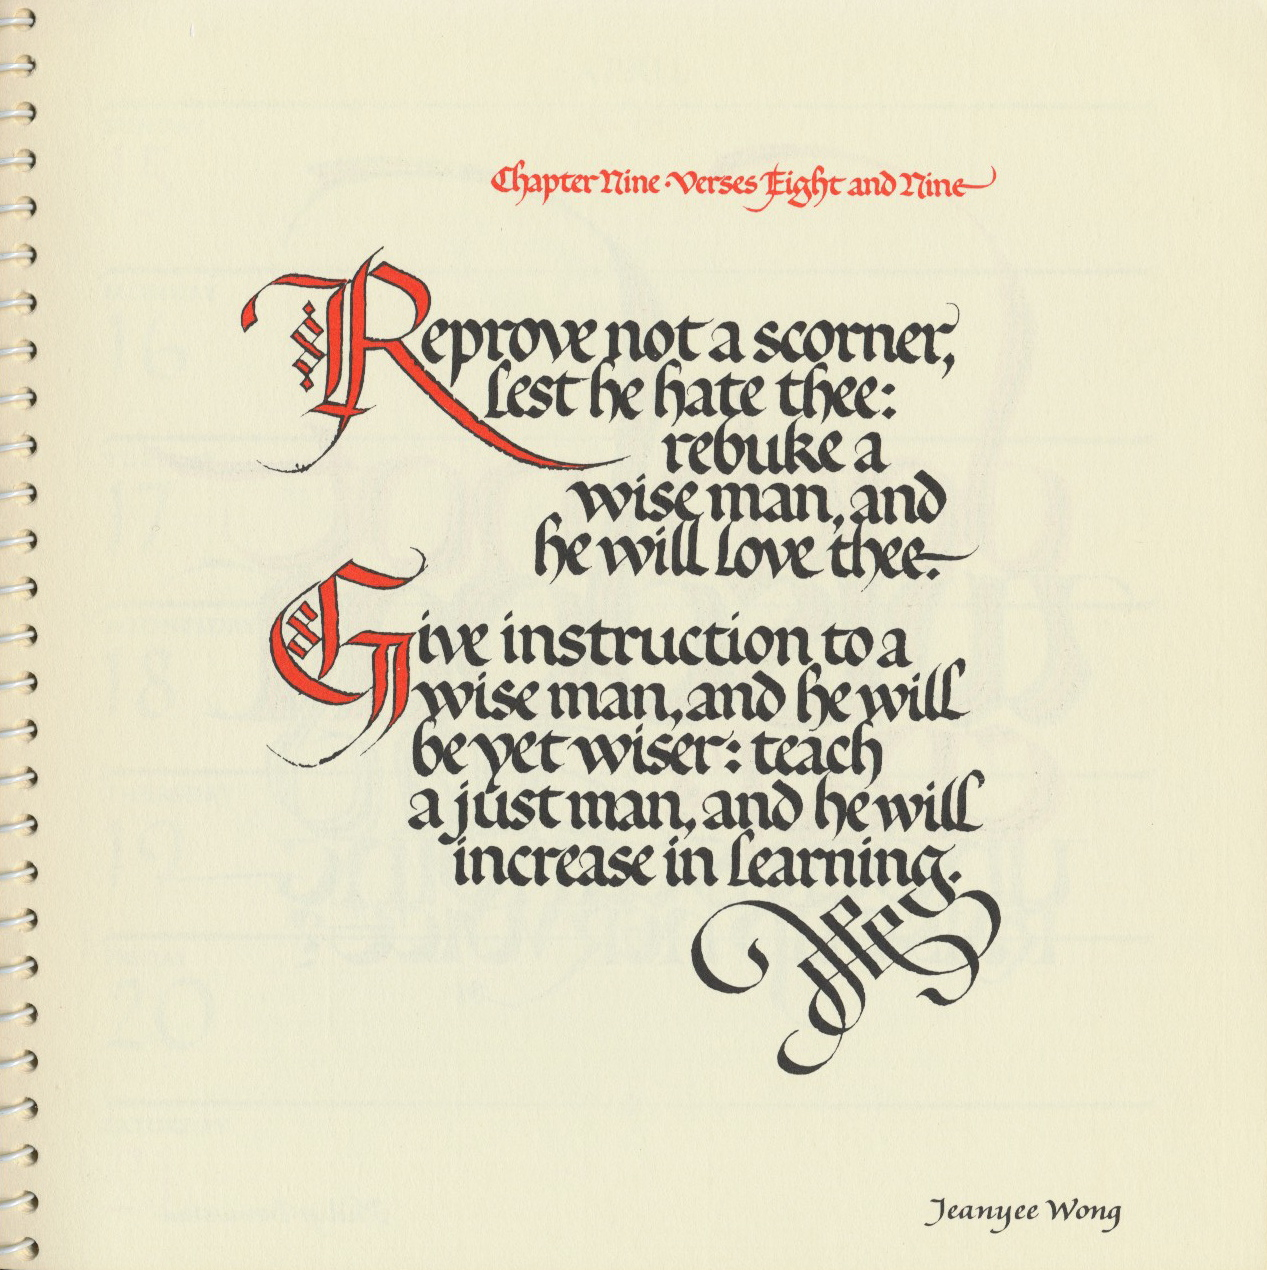 Chapter Nine · Verses Eight and Nine
Reprove not a scorner,
lest he hate thee:
rebuke a
wise man, and
he will love thee.
Give instruction to a
wise man, and he will
be yet wiser: teach
a just man, and he will
increase in learning.
Jeanyee Wong